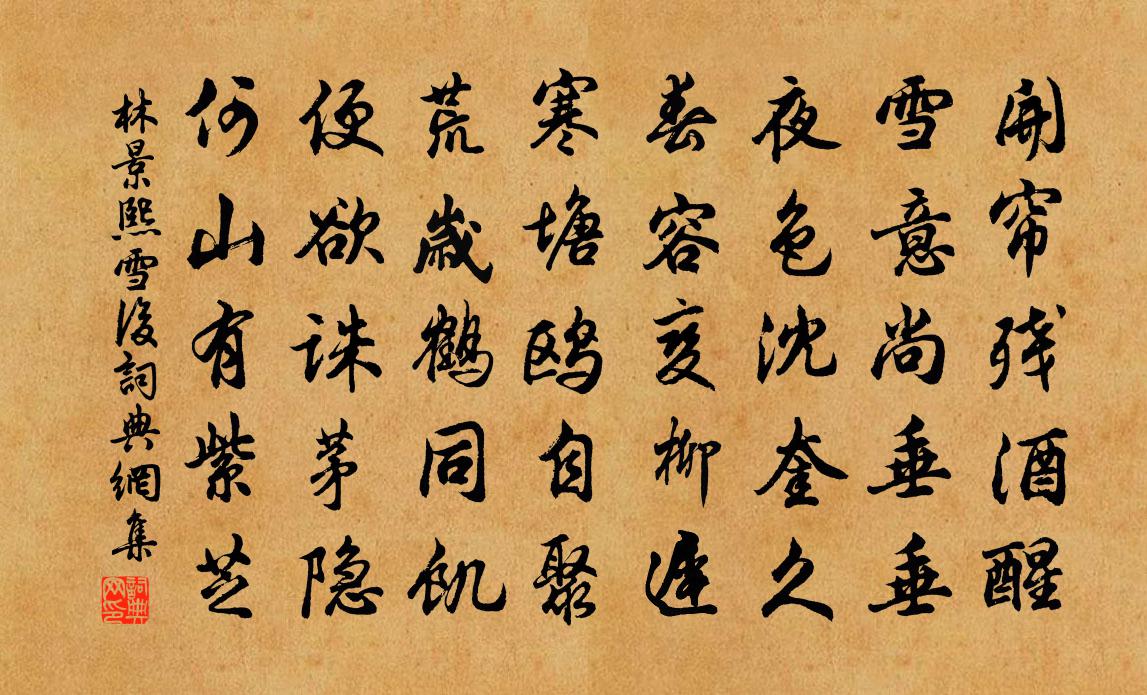 開帘残酒醒
雪意尚垂垂
夜色沈奎久
春容变柳遲
寒塘鸥自聚
荒歲鹤同飢
便欲诛茅隐
何山有紫芝
林景熙雪後詞典網集
詞典
网印